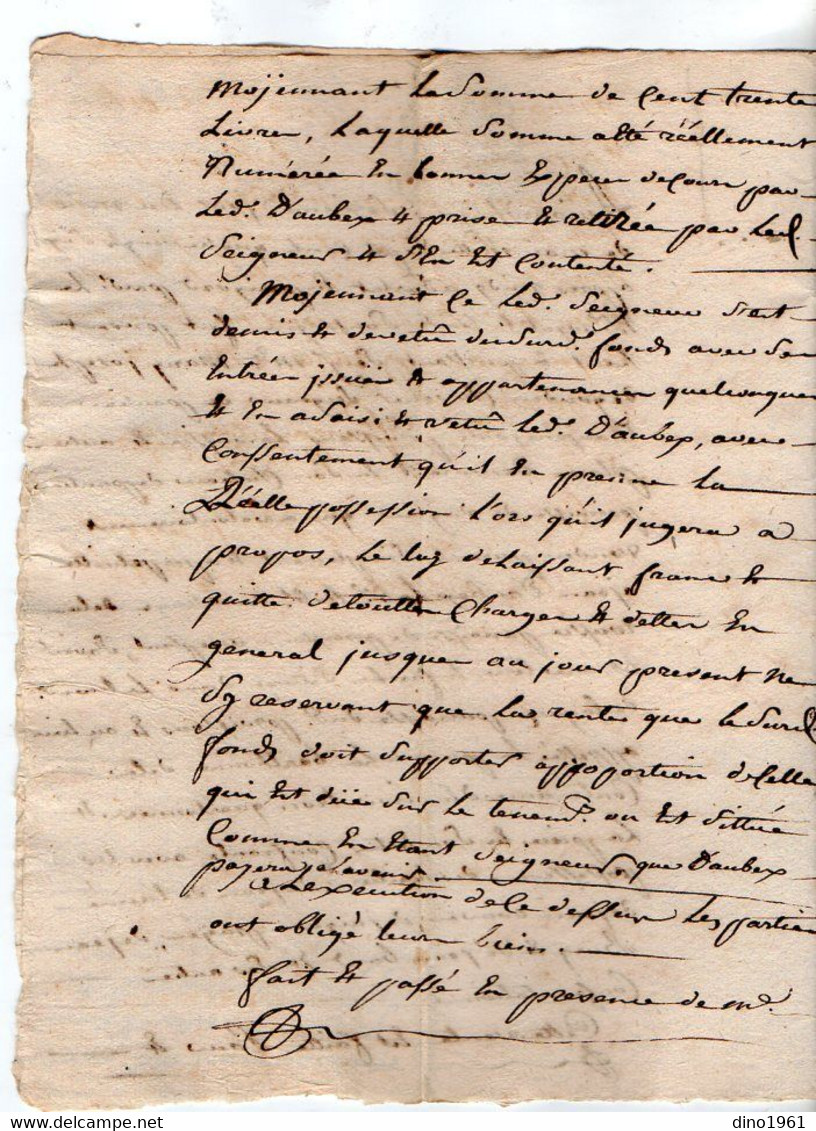 Mojennant La Somme de Cent trente
Livres, Laquelle Somme a été réellement
Numérée En bonnes Especes de Cours par
Led. Daubex & prise & retirée par Led.
Seigneur & s'En Est Contenté.
Mojennant Ce Led. Seigneur s'est
demis & devetû dudsud. fonds avec ses
Entrées issües & appartenances quelconques
& En a saisi & vetû Led. Daubex, avec
Conssentement qu'il En prenne La
Réelle possession Lors qu'il jugera a
propos, Le Luy delaissant franc &
quitte de touttes Charges & dettes En
general jusques au jour present ne
s'y reservant que La rente que Le susd.
fonds doit supporter a pportion de Celle
qui Est düe sur Le tenemt. ou Est sittué
Comme En Etant Seigneur, que Daubex
payera a L'avenir.
a L'execution de Ce dessus Les parties
ont obligé Leurs biens.
fait & passé En presence de Me.
dino1961